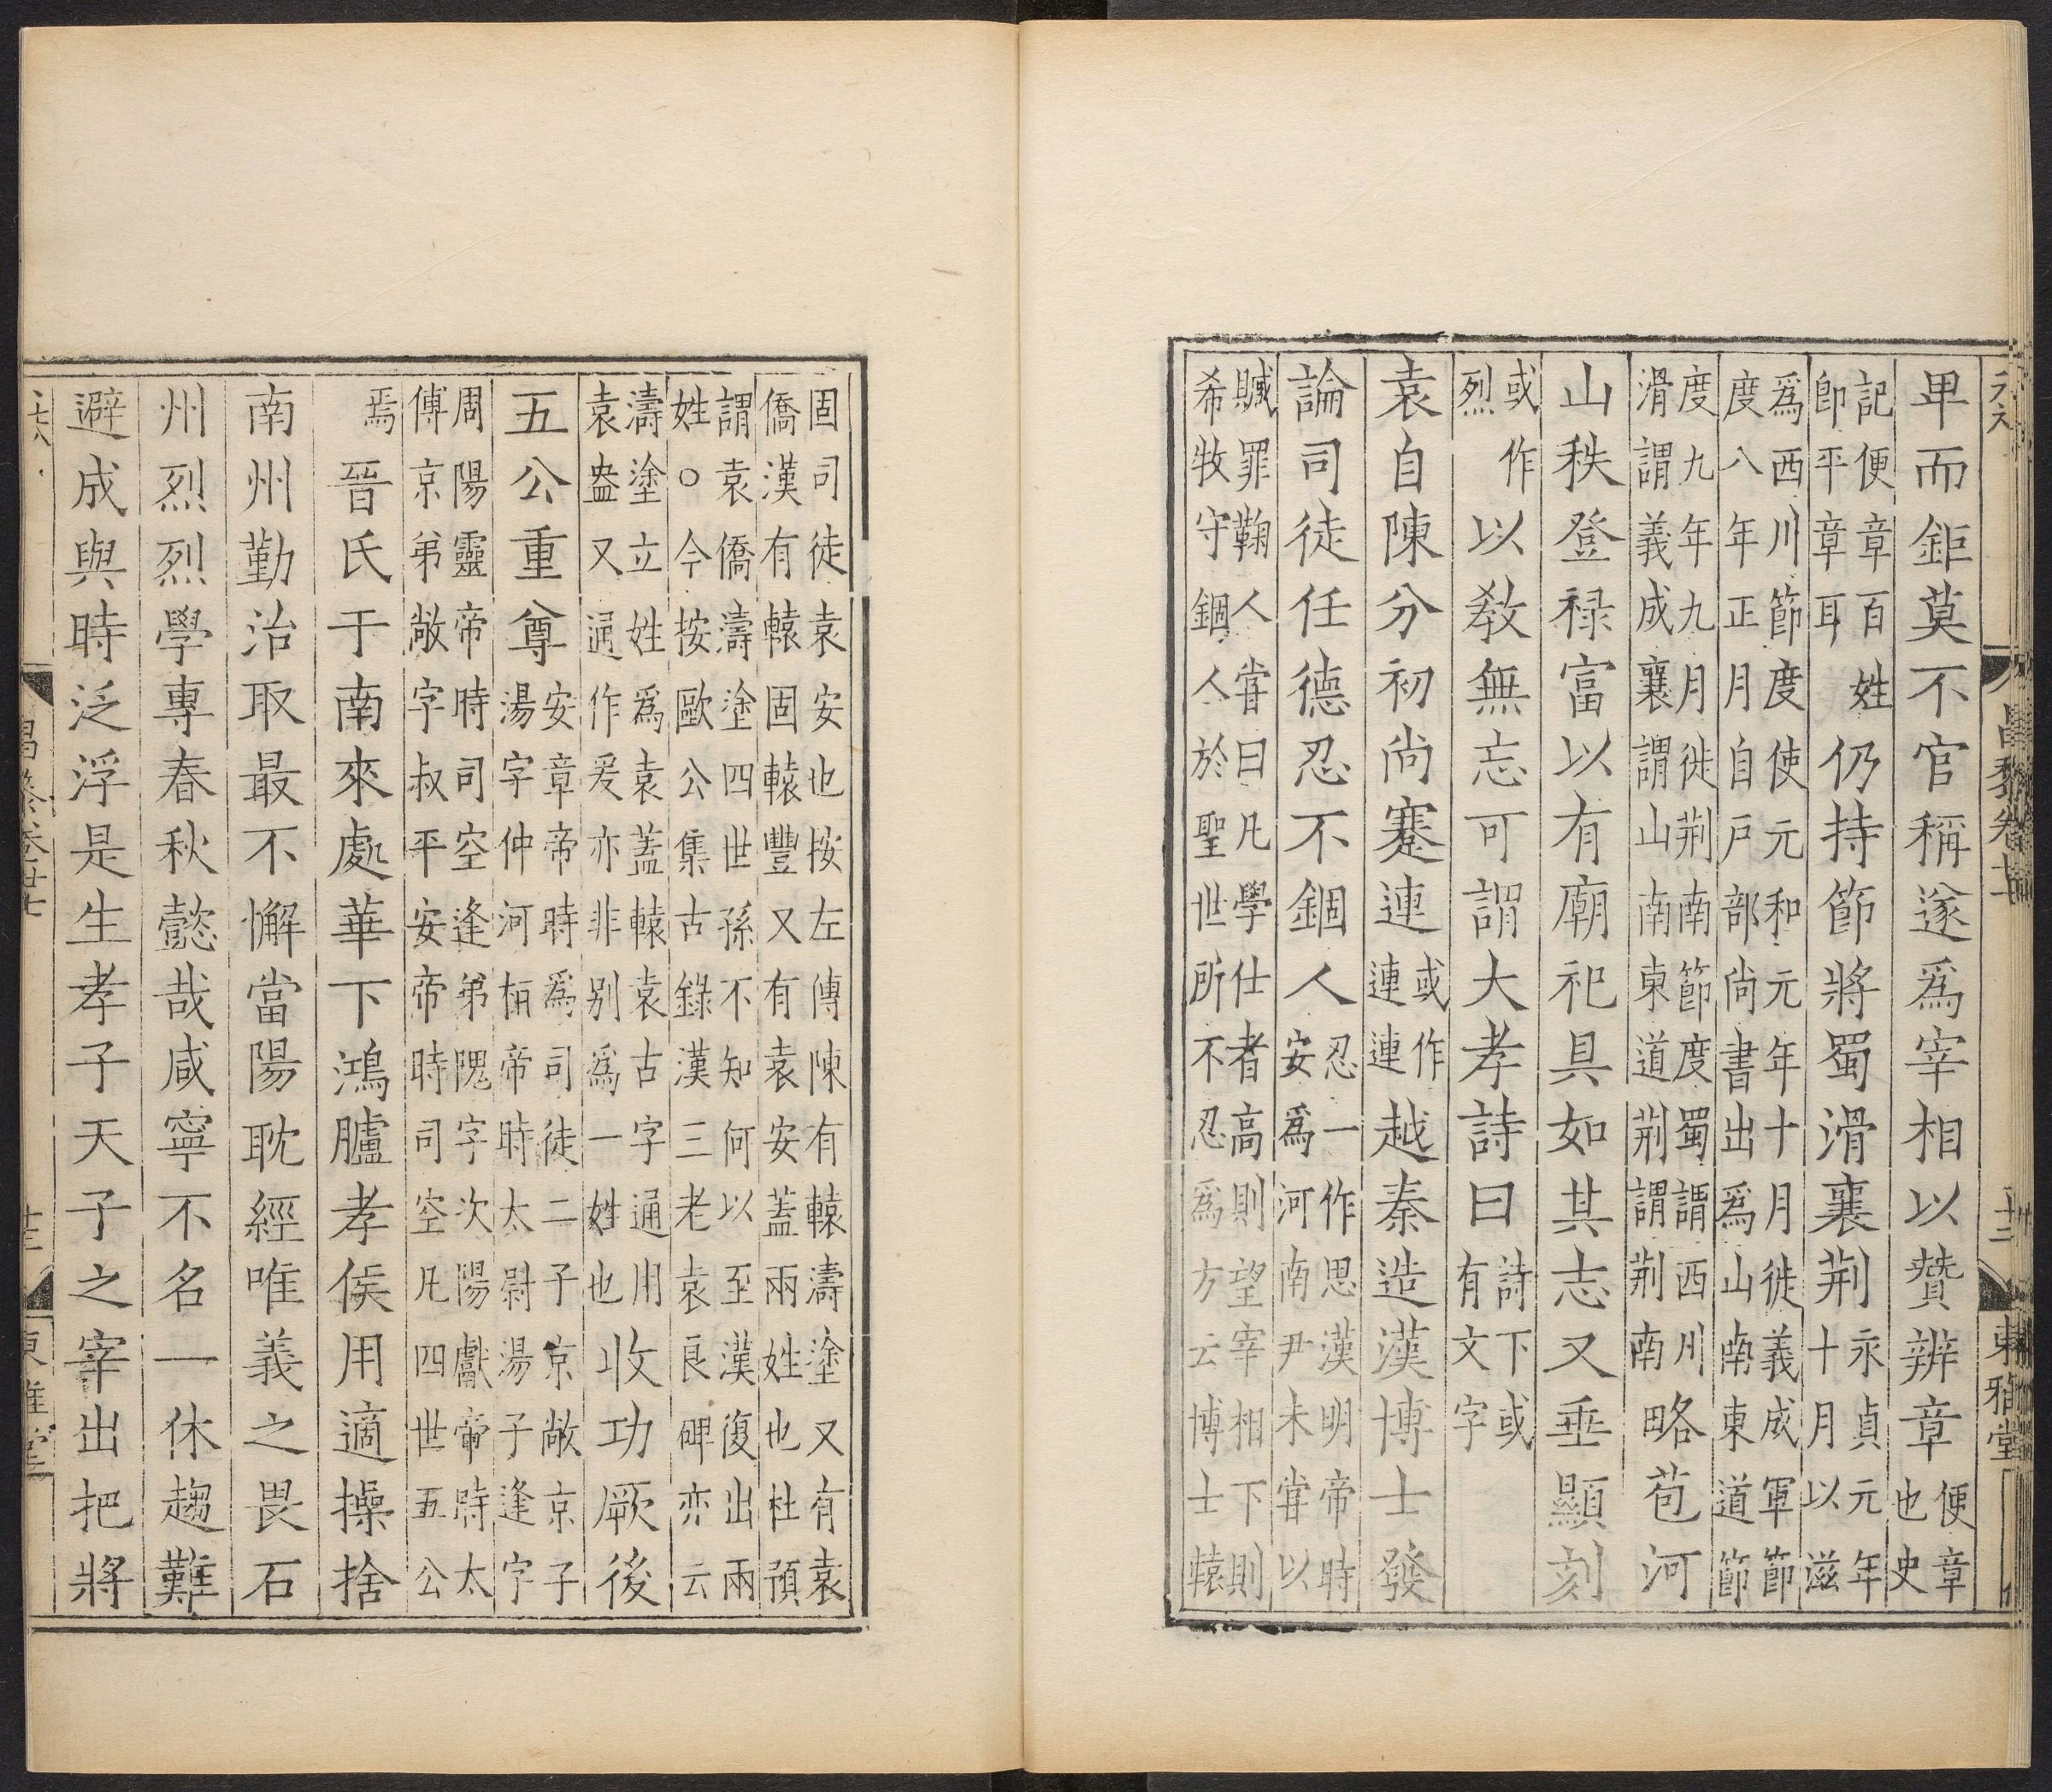 卑而鉅莫不官稱遂爲宰相以贊辨章
便章
也史
記便章百姓
卽平章耳
仍持節將蜀滑襄荆
永貞元年
十月以滋
爲西川節度使元和元年十月徙義成軍節
度八年正月自戸部尚書出爲山南東道節
度九年九月徙荆南節度蜀謂西川
滑謂義成襄謂山南東道荆謂荆南
略苞河
山秩登禄富以有廟祀具如其志又垂顯刻
或作
烈
以教無忘可謂大孝詩曰
詩下或
有文字
袁自陳分初尚蹇連
或作
連連
越秦造漢博士發
論司徒任德忍不錮人
忍一作思漢明帝時
安爲河南尹未甞以
贓罪鞠人甞曰凡學仕者高則望宰相下則
希牧守錮人於聖世所不忍爲方云博士轅
固司徒袁安也按左傳陳有轅濤塗又有袁
僑漢有轅固轅豐又有袁安蓋兩姓也杜預
謂袁僑濤塗四世孫不知何以至漢復出兩
姓○今按歐公集古錄漢三老袁良碑亦云
濤塗立姓爲袁蓋轅袁古字通用
袁盎又通作爰亦非别爲一姓也
收功厥後
五公重尊
安章帝時爲司徒二子京敞京子
湯字仲河桓帝時太尉湯子逢字
周陽靈帝時司空逢弟隗字次陽獻帝時太
傅京弟敞字叔平安帝時司空凡四世五公
焉
晉氏于南來處華下鴻臚孝侯用適操捨
南州勤治取最不懈當陽耽經唯義之畏石
州烈烈學專春秋懿哉咸寧不名一休趨難
避成與時泛浮是生孝子天子之宰出把將
昌黎卷廿七
十三
東雅堂